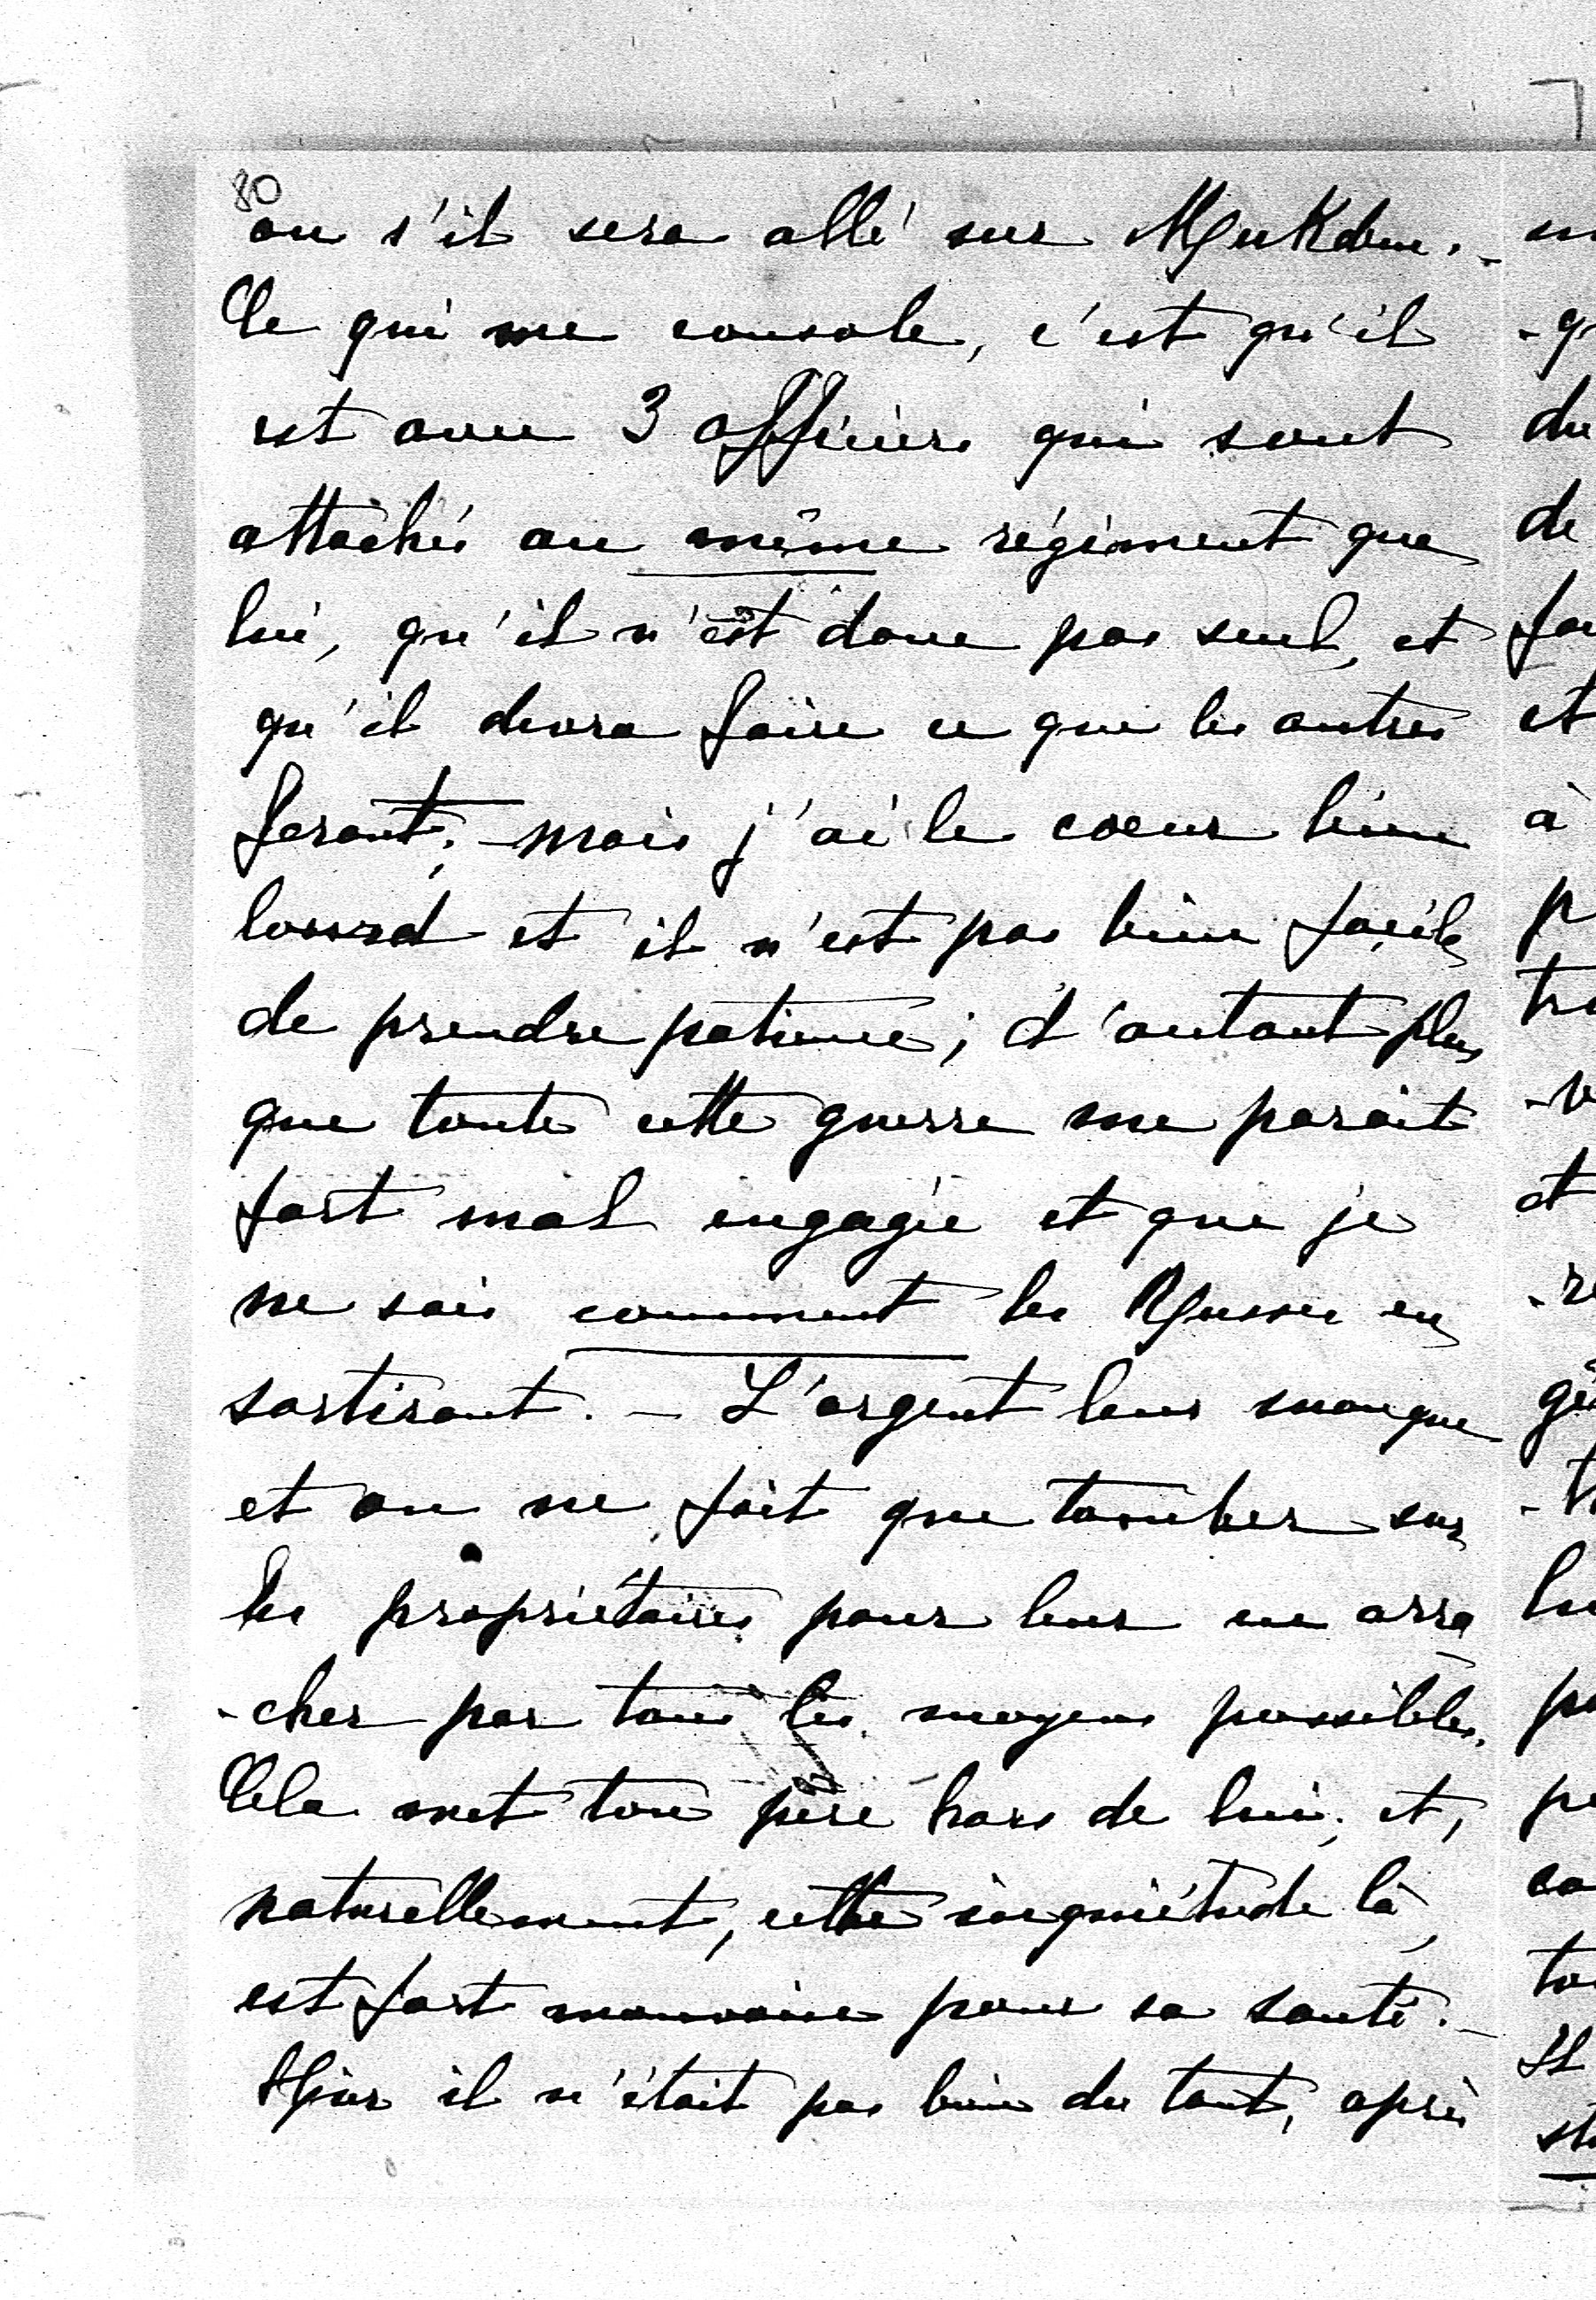 80
ou s'il sera allé sur Mukden. -
Ce qui me console, c'est qu'il
est avec 3 officiers qui sont
attachés au même régiment que
lui, qu'il n'est donc pas seul, et
qu'il devra faire ce que les autres
feront; - mais j'ai le coeur bien
lourd et il n'est pas bien facile
de prendre patience; d'autant plus
que toute cette guerre me paraît
fort mal engagée et que je
ne sais comment les Russes en
sortiront. - L'argent leur manque
et on ne fait que tomber sur
les propriétaires pour leur en arra
-cher par tous les moyens possibles.
Cela met ton père hors de lui; et,
naturellement, cette inquiétude là,
est fort mauvaise pour sa santé. -
Hier il n'était pas bien du tout, après
du
de
et
à
et
Il